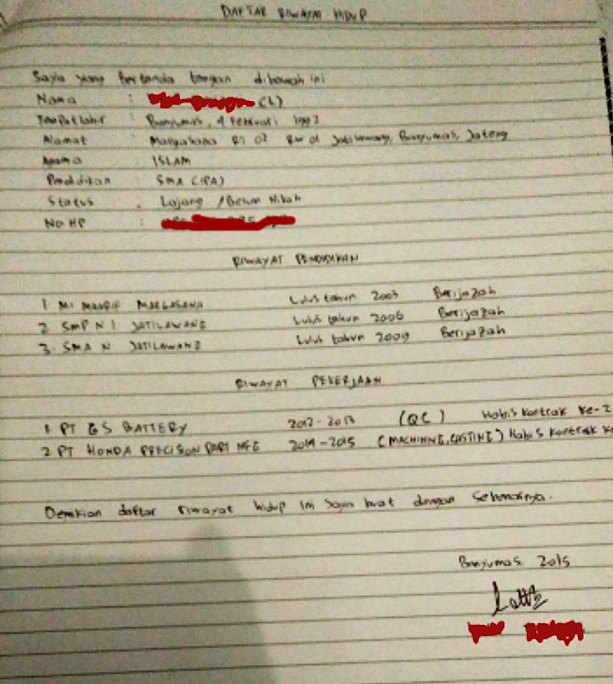 DAFTAR RIWAYAT HIDUP
Saya yang bertanda tangan dibawah ini
Nama : (L)
Tempat lahir : Banyumas, 4 Februari
Alamat : Margasana RT 02 RW 01 Jatilawang, Banyumas, Jateng
Agama : ISLAM
Pendidikan : SMA (IPA)
Status : Lajang / Belum Nikah
No HP :
RIWAYAT PENDIDIKAN
1 MI MAARIF MARGASANA Lulus tahun 2003 Berijazah
2. SMP N 1 JATILAWANG Lulus tahun 2006 Berijazah
3. SMA N JATILAWANG Lulus tahun 2009 Berijazah
RIWAYAT PEKERJAAN
1 PT GS BATTERY 2012-2013 (QC) Habis kontrak ke-2
2 PT HONDA PRECISION PART MFG 2014-2015 (MACHINNE, CASTING) Habis kontrak
Demikian daftar riwayat hidup ini saya buat dengan sebenarnya.
Banyumas 2015